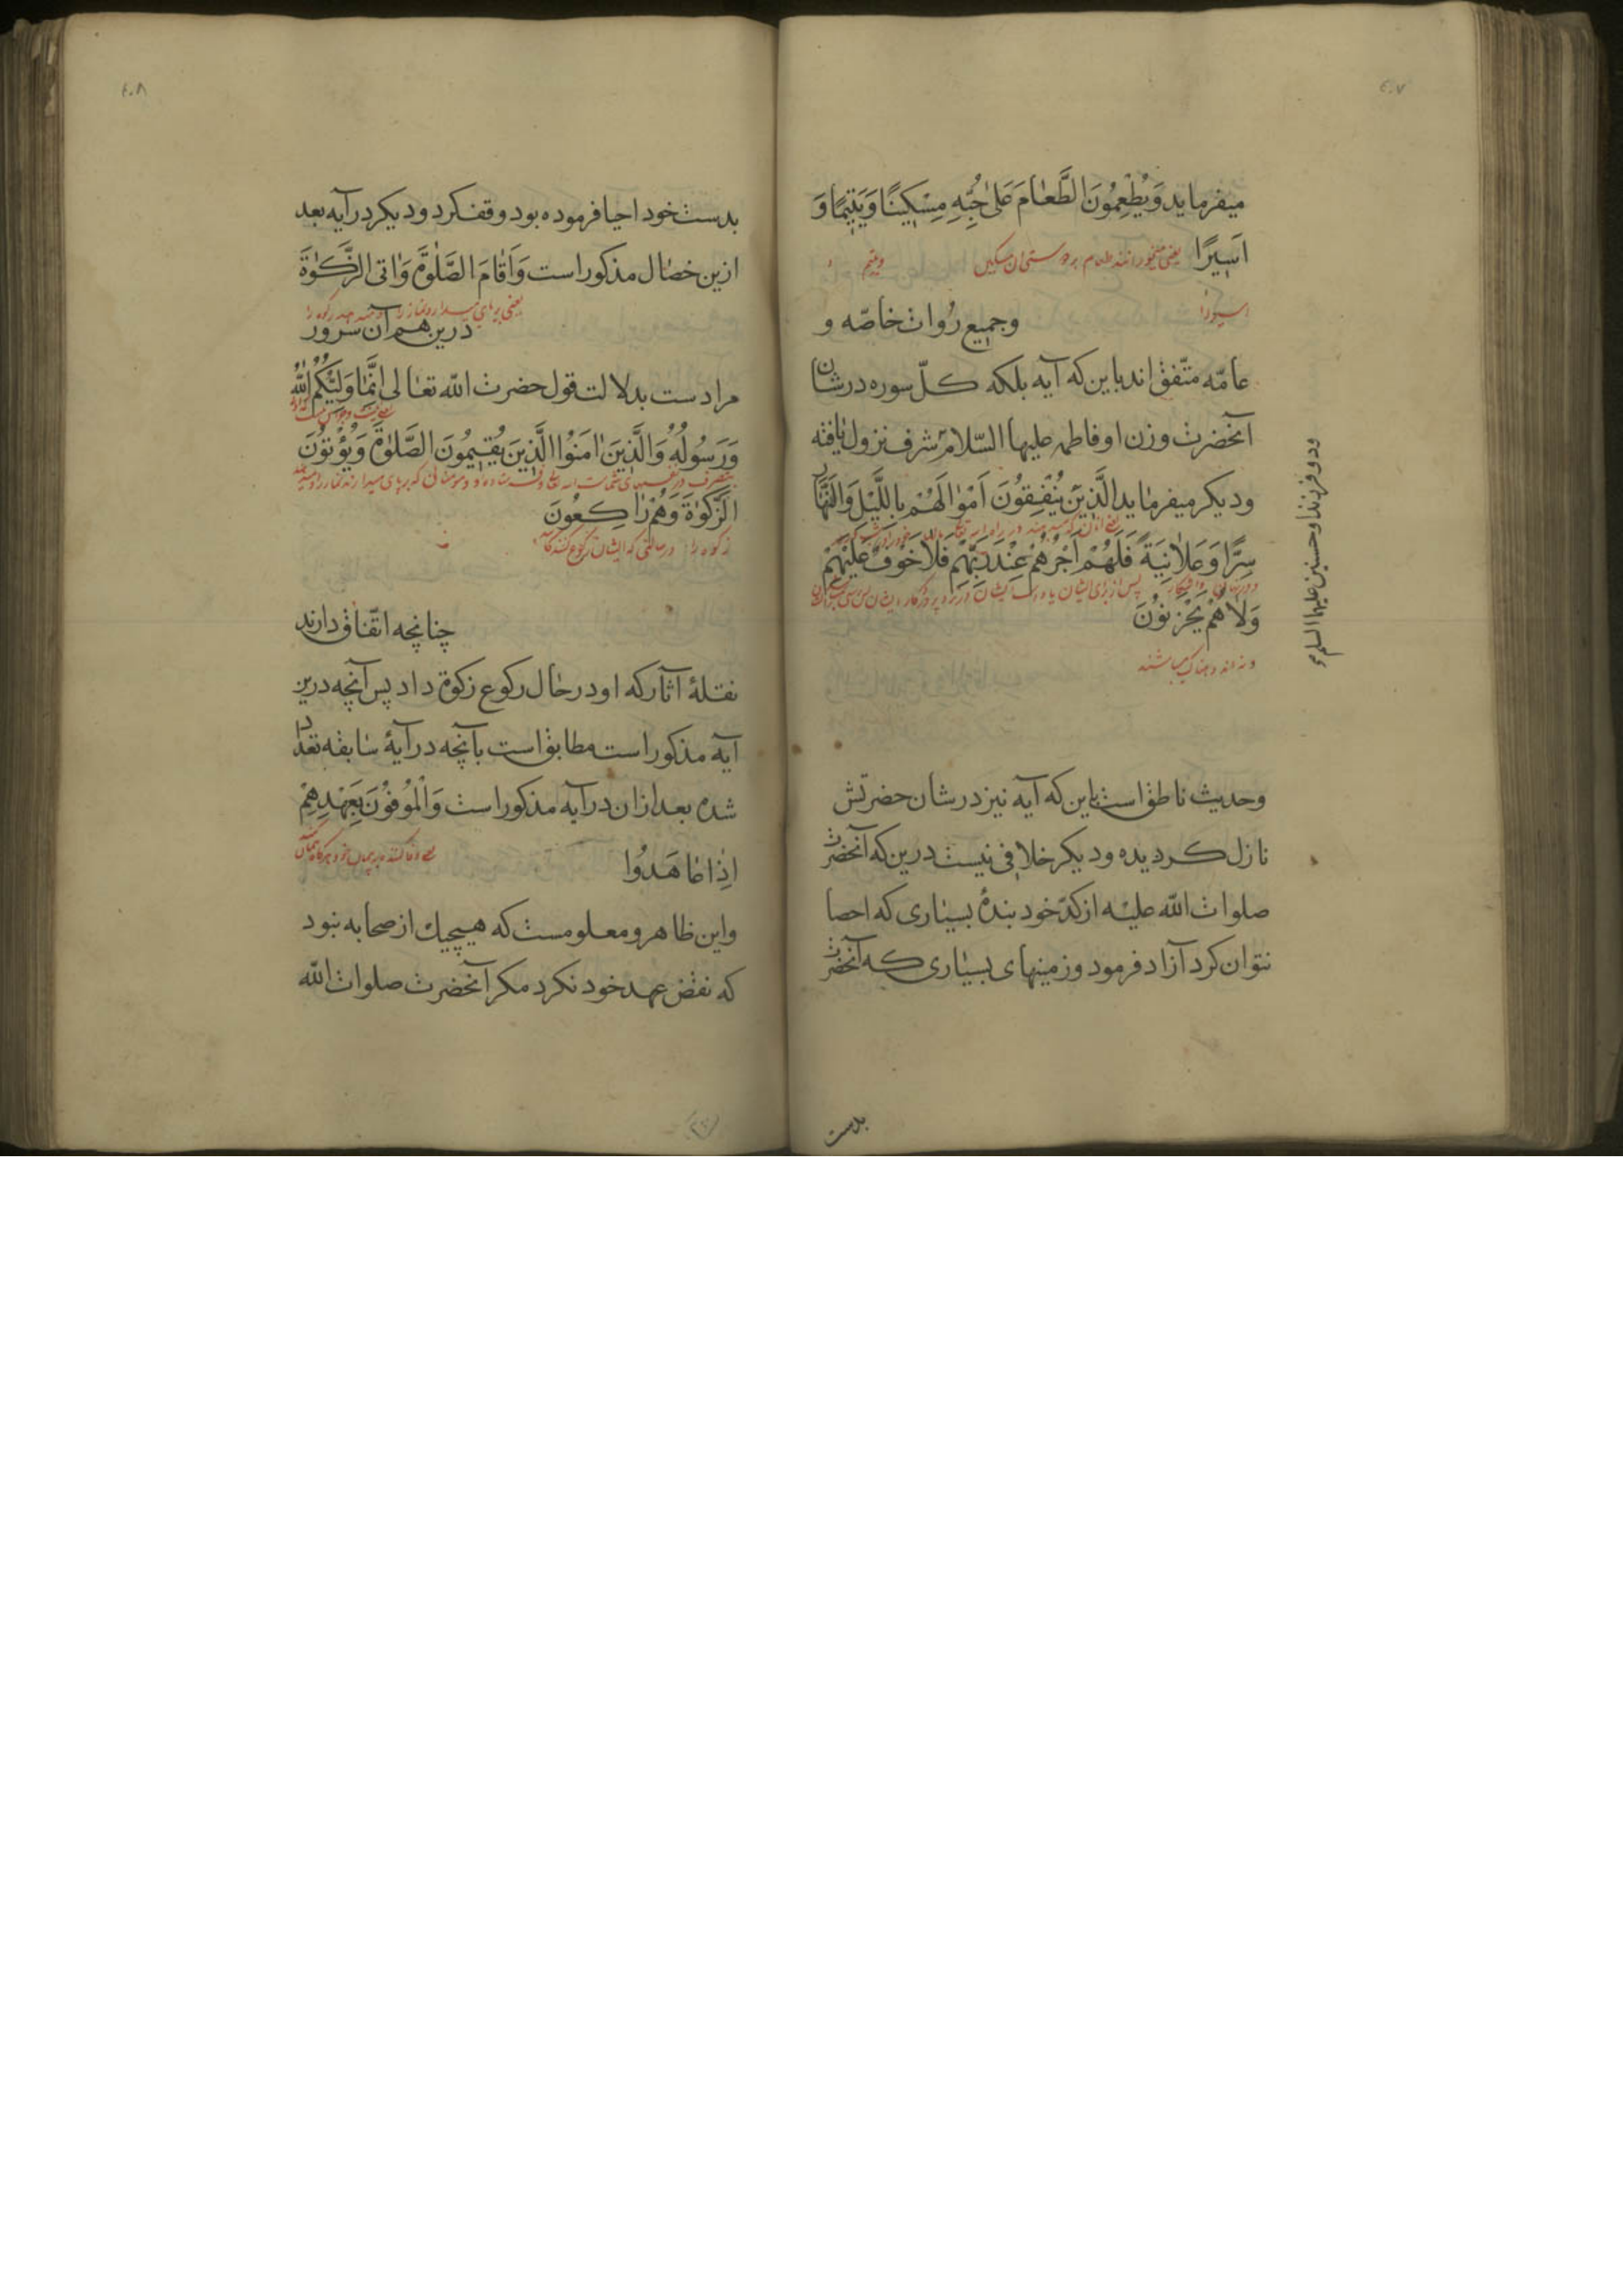 ٤٠٧
میفرماید وَیُطْعِمُونَ الطَّعٰامَ عَلیٰ حُبِّهِ مِسْکِینًا وَیَتِیمًا وَ
اَسِیرًا یعنی میخورانند طعام بر دوستی آن مسکین ویتیم و
اسیر را
وجمیع رُوات خاصّه و
عامّه متّفق اند باین که آیه بلکه کلّ سوره در شان
آنحضرت وزن او فاطمه علیها السّلام شرف نزول یافته
ودو فرزند او حسنین علیهما السلم
ودیکر میفرماید الَّذِینَ یُنْفِقُونَ اَمْوٰالَهُمْ بِاللَّیْلِ وَالنَّهٰارِ
سِرًّا وَعَلاٰنِیَةً فَلَهُمْ اَجْرُهُمْ عِنْدَ رَبِّهِمْ فَلاٰ خَوْفٌ عَلَیْهِمْ
پس از برای ایشان
وَلاٰ هُمْ یَحْزَنُونَ
ونه اندوهناک میباشند
وحدیث ناطق است باین که آیه نیز در شان حضرتش
نازل کردیده ودیکر خلافی نیست درین که آنحضرت
صلوات اللّه علیه از کدّ خود بندهٔ بسیاری که احصا
نتوان کرد آزاد فرمود وزمینهای بسیاری که آنحضرت
بدست
٤٠٨
بدست خود احیا فرموده بود وقف کرد ودیکر در آیه بعد
ازین خصال مذکور است وَاَقٰامَ الصَّلٰوةَ وَاٰتی الزَّکٰوةَ
یعنی برپای میدارد نماز را
درین هم آن سرور
مرادست بدلالت قول حضرت اللّه تعالی اِنَّمٰا وَلِیُّکُمُ اللّٰهُ
وَرَسُولُهُ وَالَّذِینَ اٰمَنُوا الَّذِینَ یُقِیمُونَ الصَّلٰوةَ وَیُؤْتُونَ
الزَّکٰوةَ وَهُمْ رٰاکِعُونَ
زکوه را در حالتی که ایشان رکوع کنندکانند
چنانچه اتّفاق دارند
نقلهٔ آثار که او در حال رکوع زکوة داد پس آنچه درین
آیه مذکور است مطابق است بآنچه در آیهٔ سابقه تعداد
شده بعد ازان در آیه مذکور است وَالْمُوفُونَ بِعَهْدِهِمْ
اِذٰا عٰاهَدُوا
واین ظاهر ومعلومست که هیچیك از صحابه نبود
که نقض عهد خود نکرد مکر آنحضرت صلوات اللّه